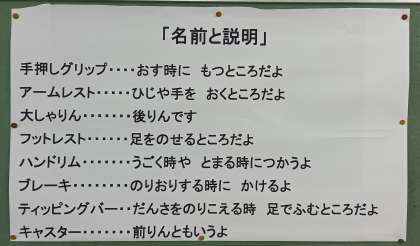 「名前と説明」
手押しグリップ････おす時に　もつところだよ
アームレスト･････ひじや手を　おくところだよ
大しゃりん･･･････後りんです
フットレスト･･････足をのせるところだよ
ハンドリム･･･････うごく時や　とまる時につかうよ
ブレーキ････････のりおりする時に　かけるよ
ティッピングバー･･だんさをのりこえる時　足でふむところだよ
キャスター･･･････前りんともいうよ